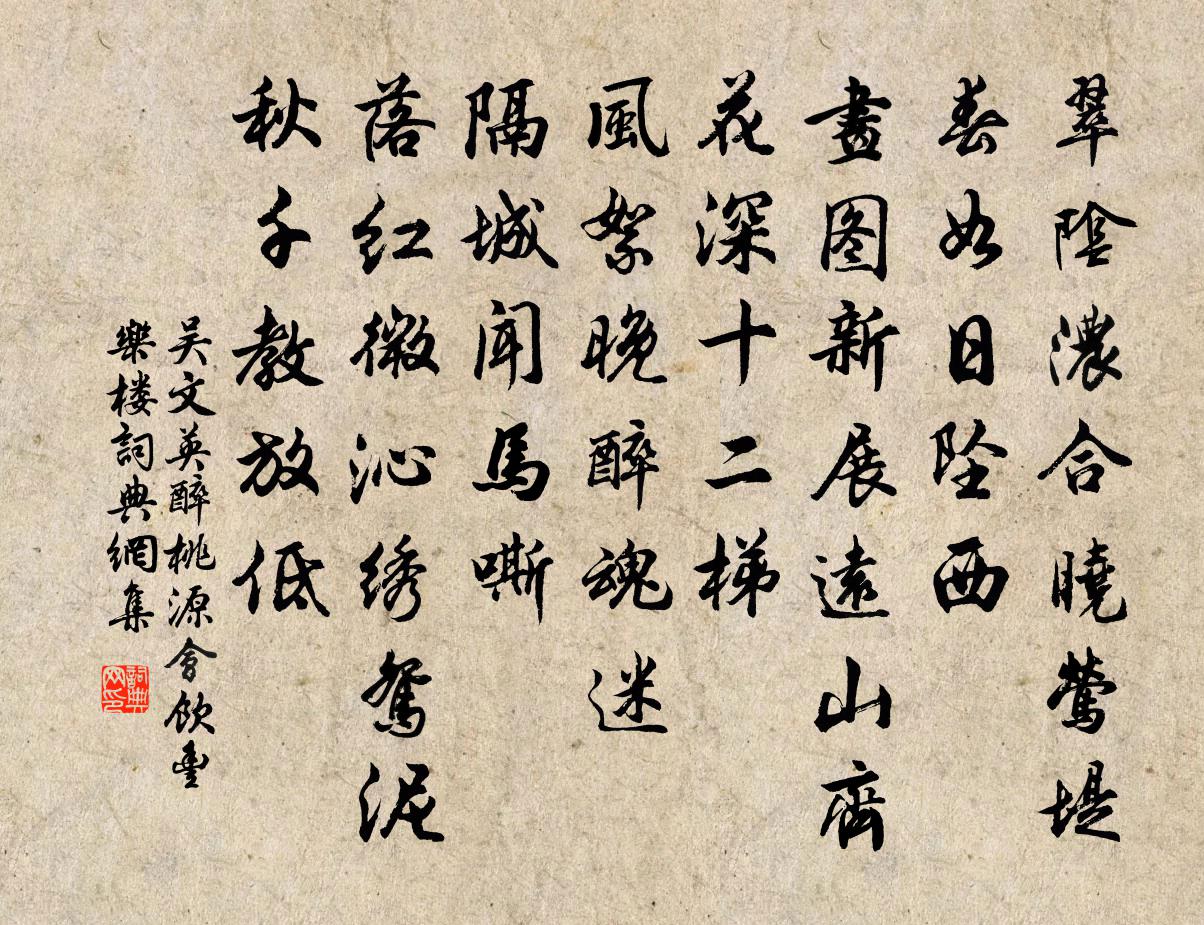 翠陰濃合曉鶯堤
春如日坠西
畫图新展遠山齊
花深十二梯
風絮晚醉魂迷
隔城聞馬嘶
落红微沁绣鴛泥
秋千教放低
吴文英醉桃源會飲豐
樂楼詞典網集
詞典网印